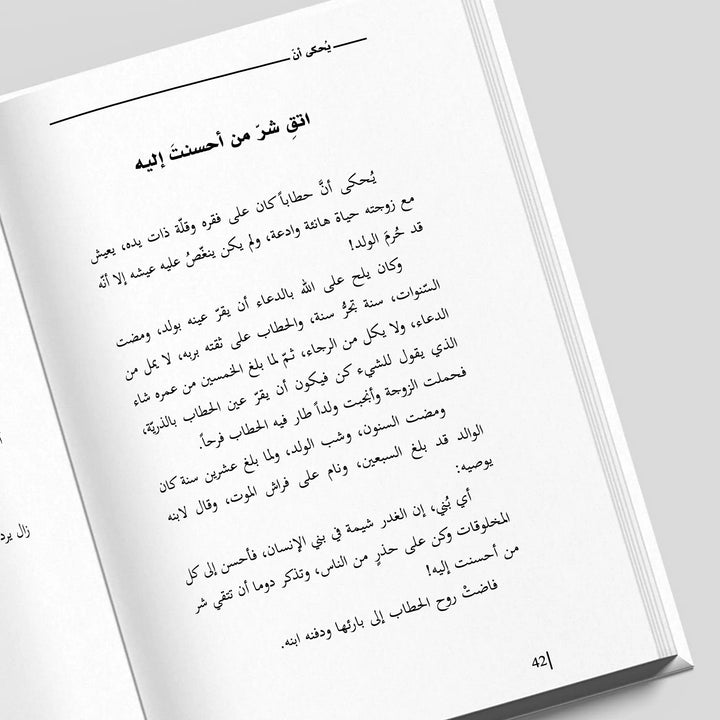 يُحكى أنّ
اتقِ شرّ من أحسنتَ إليه
يُحكى أنَّ حطاباً كان على فقره وقلّة ذات يده، يعيش
مع زوجته حياة هانئة وادعة، ولم يكن ينغّصُ عليه عيشه إلا أنّه
قد حُرمَ الولد!
وكان يلح على الله بالدعاء أن يقرّ عينه بولد، ومضت
السّنوات، سنة تجرُّ سنة، والحطاب على ثقته بربه، لا يمل من
الدعاء، ولا يكل من الرجاء، ثمّ لما بلغ الخمسين من عمره شاء
الذي يقول للشيء كن فيكون أن يقرّ عين الحطاب بالذريّة،
فحملت الزوجة وأنجبت ولداً طار فيه الحطاب فرحاً.
ومضت السنون، وشب الولد، ولما بلغ عشرين سنة كان
الوالد قد بلغ السبعين، ونام على فراش الموت، وقال لابنه
يوصيه:
أي بُني، إن الغدر شيمة في بني الإنسان، فأحسن إلى كل
المخلوقات وكن على حذرٍ من الناس، وتذكر دوما أن تتقي شر
من أحسنت إليه!
فاضتْ روح الحطاب إلى بارئها ودفنه ابنه.
42
زال يرد